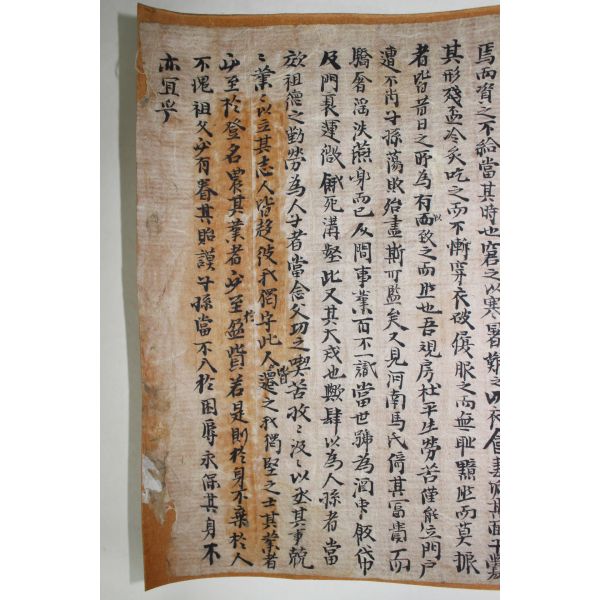 焉而資之不給當其時也窘之以寒暑艱之以衣食妻垢其面子纍
其形殘盃冷炙吃之而不慚穿衣破履服之而無耻黯然而莫振
者皆昔日之所為有以致之而然也吾視房杜平生勞苦僅能立門户
遭不肖子孫蕩敗殆盡斯可監矣又見河南馬氏倚其富貴而
驕奢滛泆燕身而已及問事業百不一識當世號為酒囊飯帒
及門衰運微餓死溝壑此又其大戒也歟肆以為人孫者當
放祖德之勤勞為人子者當念父功之喫苦孜〻汲〻以丞其事兢
〻業〻以立其志人皆趍彼我獨守此人皆遷之我獨堅之士其業者
必至於登名農其業者必至於盈貲若是則於身不棄於人
不愧祖父必有眷其貽謨子孫當不入於困辱永保其身不
亦宜乎